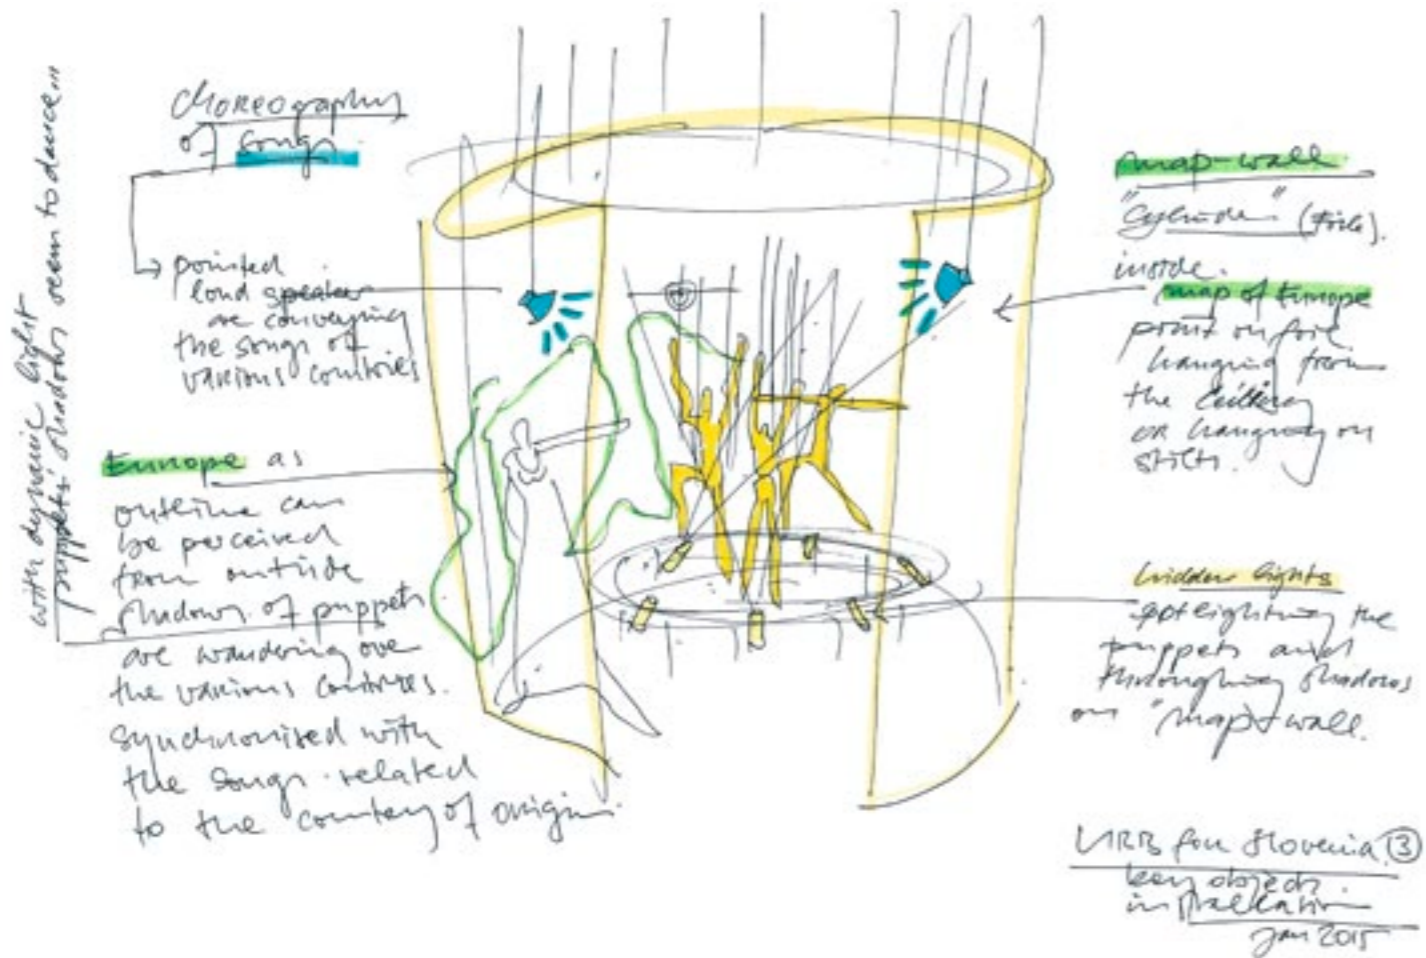 with dynamic light
puppets' shadows seem to dance...
Choreography
of songs
pointed
loud speaker
are conveying
the songs of
various countries
Europe as
outline can
be perceived
from outside
shadows of puppets
are wandering over
the various countries.
synchronised with
the songs related
to the country of origin.
map-wall
"Cylinder" (foil).
inside.
map of Europe
print on foil
hanging from
the ceiling
or hanging on
stilts.
hidden lights
the
puppets and
shadows
on "map-wall.
for Slovenia 3
key object
installation
Jan 2015